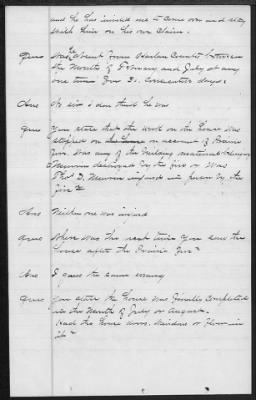 and he has invited me to come over and stay
with him on his own claim.
Ques Was he absent from Harlan County between
the Month of and July at any
one time for 30 Consecutive days?
Ans No sir I don think he was
Ques You state that the work on the house was
stopped on account of Prairie
fire Was any of the building material belonging
destroyed by the fire or Was
Thos D. injured in person by the
fire?
Ans Neither one was injured
Ques Where Was the next time You saw the
house after the Prairie fire?
Ans I guess the same evening
Ques You state the house was finally Completed
in the Month of July or August.
Had the house doors, windows or floor in
it?